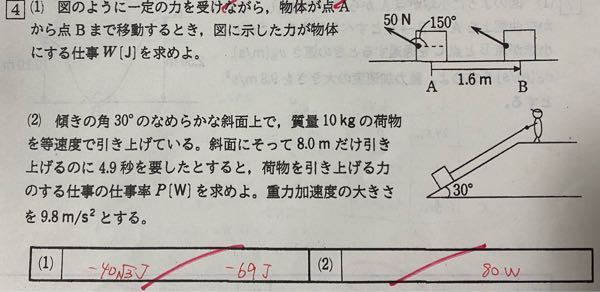 4 (1) 図のように一定の力を受けながら，物体が点A
から点Bまで移動するとき，図に示した力が物体
にする仕事W〔J〕を求めよ。
50 N
150°
A
1.6 m
B
(2) 傾きの角30°のなめらかな斜面上で，質量10 kgの荷物
を等速度で引き上げている。斜面にそって8.0 mだけ引き
上げるのに4.9秒を要したとすると，荷物を引き上げる力
のする仕事の仕事率P〔W〕を求めよ。重力加速度の大きさ
を9.8 m/s²とする。
30°
(1) -40√3 J -69 J (2) 80 W